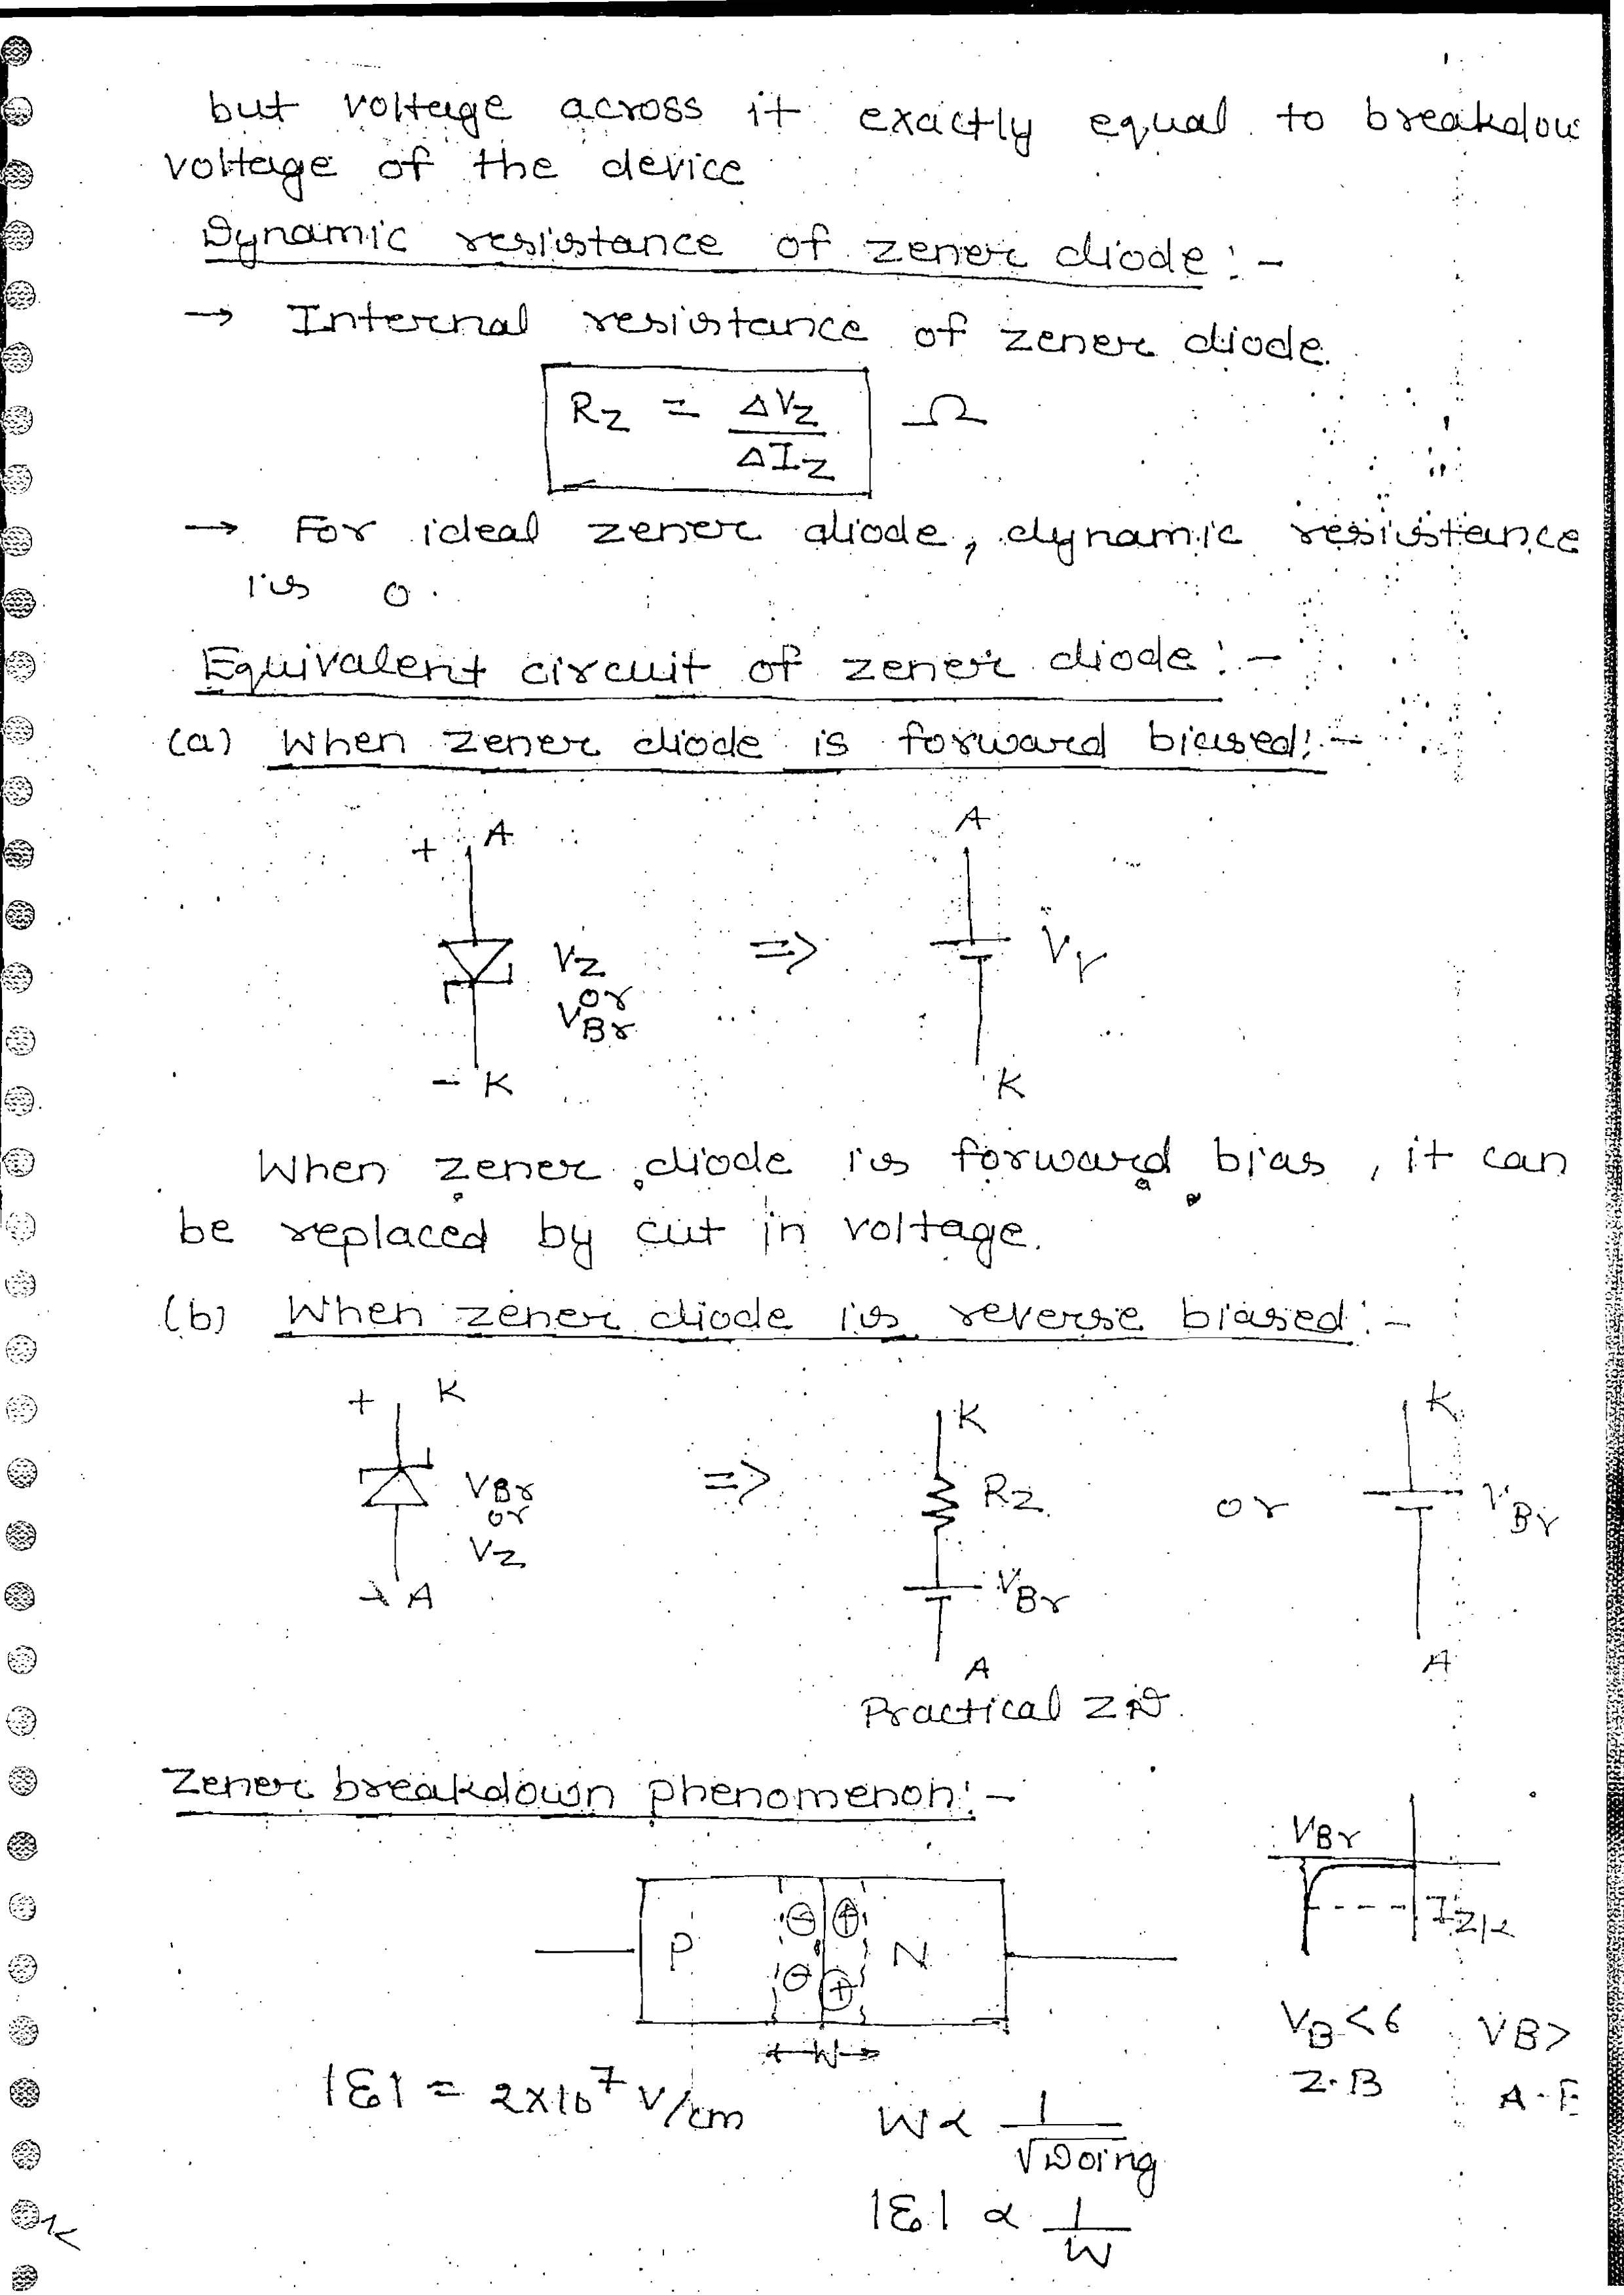 but voltage across it exactly equal to breakdow
voltage of the device
Dynamic resistance of zener diode :-
→ Internal resistance of zener diode.
Rz = ΔVz / ΔIz Ω
→ For ideal zener diode, dynamic resistance
is 0.
Equivalent circuit of zener diode :-
(a) When zener diode is forward biased :-
+ A
A
Vz
or
VBr
⇒
Vγ
- K
K
When zener diode is forward bias, it can
be replaced by cut in voltage.
(b) When zener diode is reverse biased :-
+ K
K
K
VBr
or
Vz
⇒
Rz
or
VBr
VBr
A
A
A
Practical ZD.
Zener breakdown phenomenon :-
VBr
P ⊖ ⊕ N
⊖ ⊕
W
VB < 6
VB >
Z.B
|ε| = 2×10⁷ V/cm
W ∝ 1 / √Doing
|ε| ∝ 1 / W